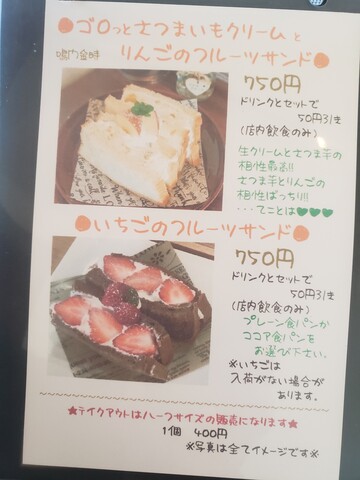 ●ゴロっとさつまいもクリームと
鳴門金時 りんごのフルーツサンド●
750円
ドリンクとセットで
50円引き
(店内飲食のみ)
生クリームとさつま芋の
相性最高!!
さつま芋とりんごの
相性ばっちり!!
・・・てことは♥♥♥
●いちごのフルーツサンド●
750円
ドリンクとセットで
50円引き
(店内飲食のみ)
プレーン食パンか
ココア食パンを
お選び下さい。
※いちごは
入荷がない場合が
あります。
★テイクアウトはハーフサイズの販売になります★
1個 400円
※写真は全てイメージです※